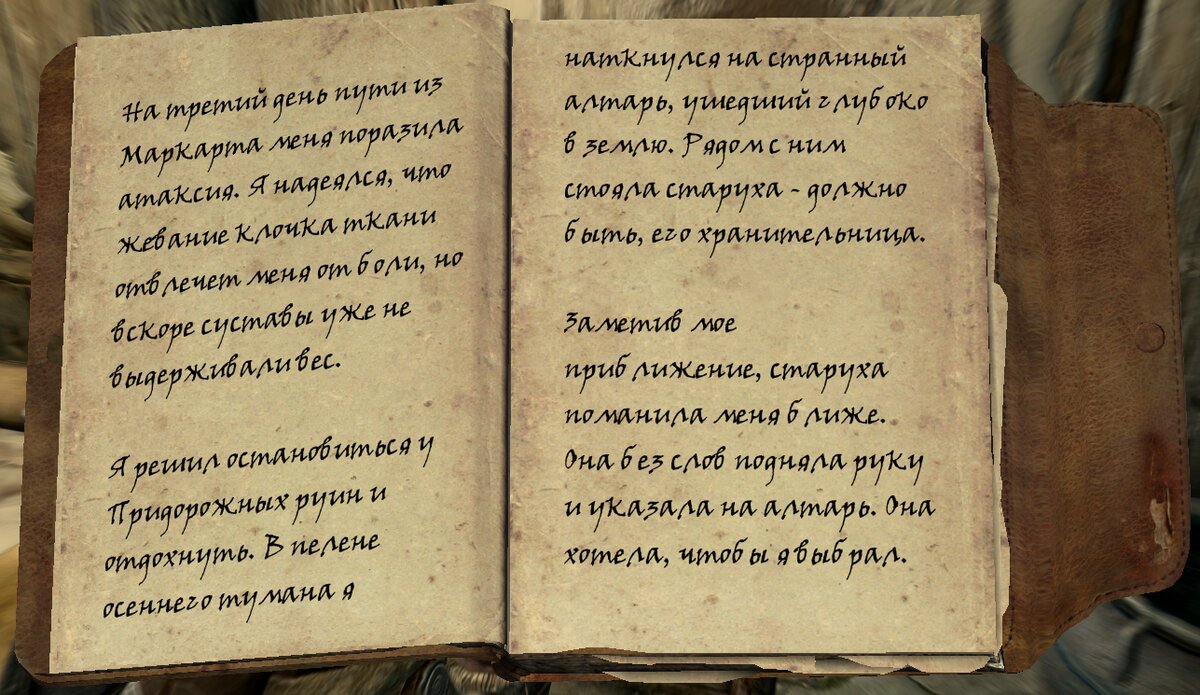 На третий день пути из
Маркарта меня поразила
атаксия. Я надеялся, что
жевание клочка ткани
отвлечет меня от боли, но
вскоре суставы уже не
выдерживали вес.
Я решил остановиться у
Придорожных руин и
отдохнуть. В пелене
осеннего тумана я
наткнулся на странный
алтарь, ушедший глубоко
в землю. Рядом с ним
стояла старуха - должно
быть, его хранительница.
Заметив мое
приближение, старуха
поманила меня ближе.
Она без слов подняла руку
и указала на алтарь. Она
хотела, чтобы я выбрал.